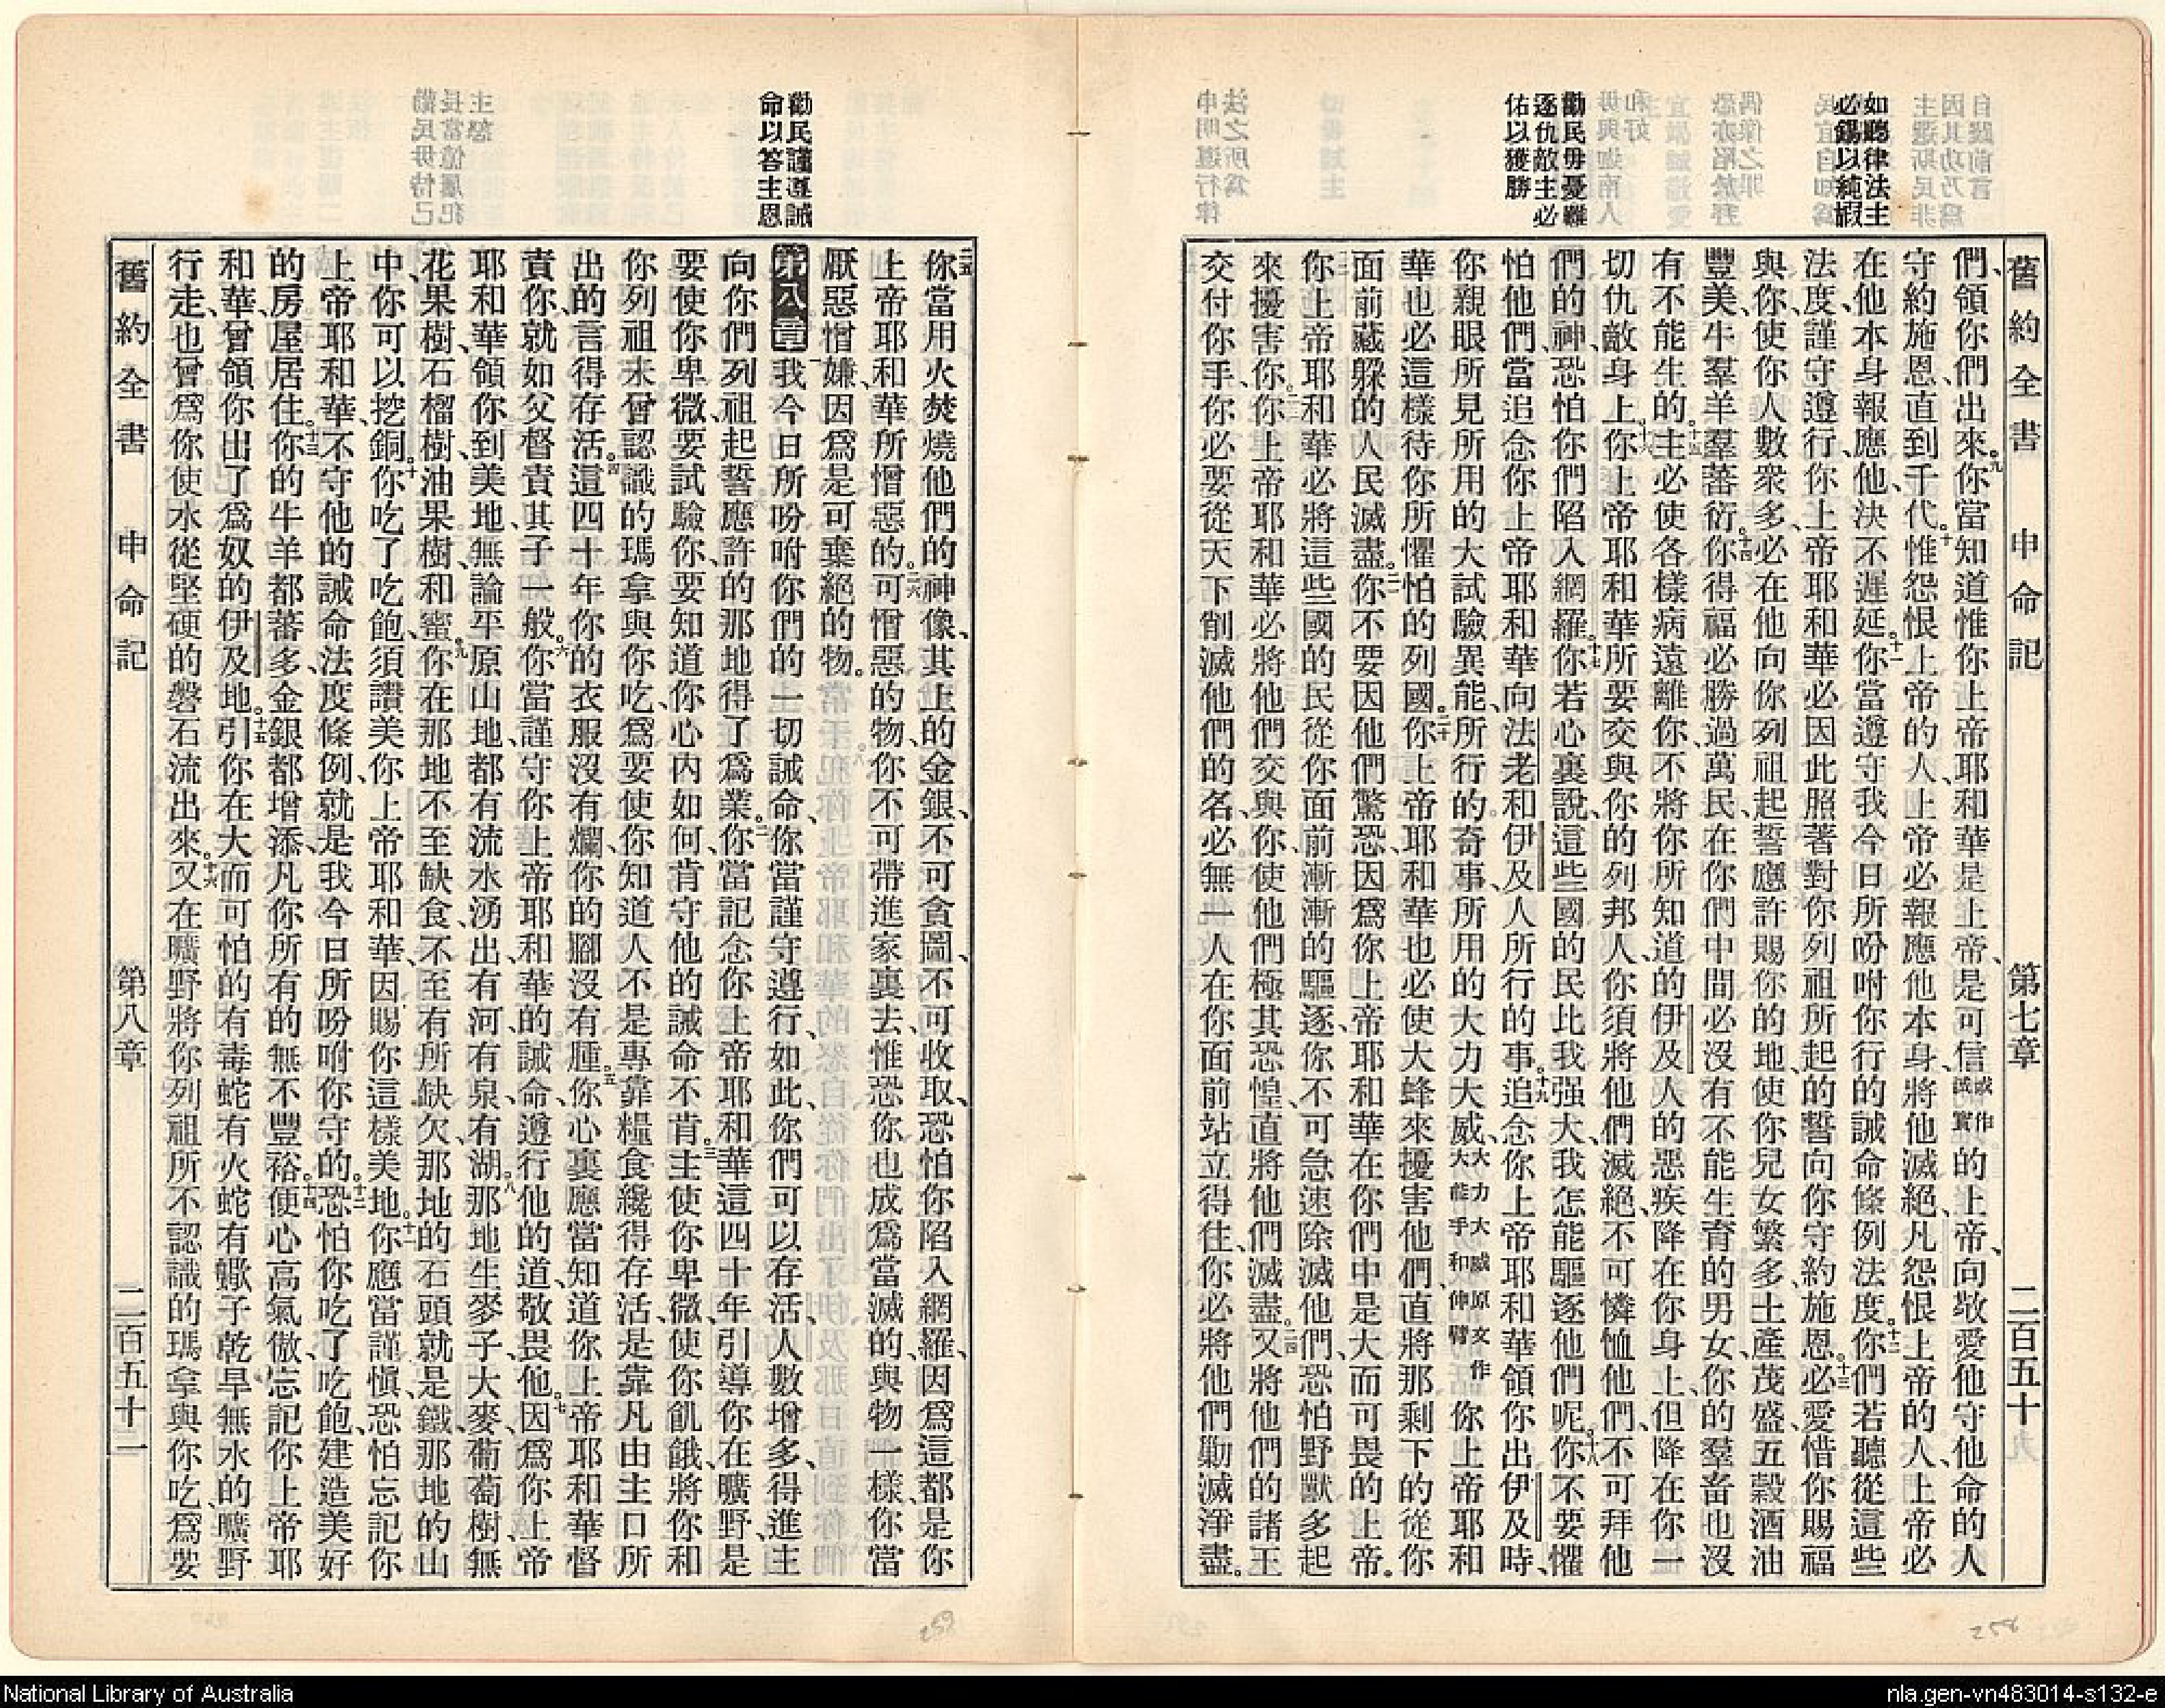 舊約全書 申命記 第七章 二百五十
如聽律法主
必錫以純嘏
勸民毋憂難
逐仇敵主必
佑以獲勝
們、領你們出來。九你當知道惟你上帝耶和華是上帝、是可信或作誠實的上帝、向敬愛他守他命的人
守約施恩、直到千代、十惟怨恨上帝的人、上帝必報應他本身、將他滅絕、凡怨恨上帝的人、上帝必
在他本身報應他、決不遲延。十一你當遵守我今日所吩咐你行的誡命條例法度。十二你們若聽從這些
法度、謹守遵行、你上帝耶和華必因此照著對你列祖所起的誓、向你守約施恩。十三必愛惜你賜福
與你、使你人數衆多、必在他向你列祖起誓應許賜你的地、使你兒女繁多、土產茂盛、五穀酒油
豐美、牛羣羊羣蕃衍。十四你得福必勝過萬民、在你們中間必沒有不能生育的男女、你的羣畜也沒
有不能生的。十五主必使各樣病遠離你、不將你所知道的伊及人的惡疾降在你身上、但降在你一
切仇敵身上。十六你上帝耶和華所要交與你的列邦人、你須將他們滅絕、不可憐恤他們、不可拜他
們的神、恐怕你們陷入網羅。十七你若心裏說、這些國的民比我强大、我怎能驅逐他們呢。十八你不要懼
怕他們、當追念你上帝耶和華向法老和伊及人所行的事。十九追念你上帝耶和華領你出伊及時、
你親眼所見所用的大試驗異能、所行的奇事、所用的大力大威、大力大威原文作大能手和伸臂你上帝耶和
華也必這樣待你所懼怕的列國。二十你上帝耶和華也必使大蜂來擾害他們、直將那剩下的從你
面前藏躱的人民滅盡。二一你不要因他們驚恐、因爲你上帝耶和華在你們中是大而可畏的上帝。
二二你上帝耶和華必將這些國的民從你面前漸漸的驅逐、你不可急速除滅他們、恐怕野獸多起
來擾害你。二三你上帝耶和華必將他們交與你、使他們極其恐惶、直將他們滅盡。二四又將他們的諸王
交付你手、你必要從天下削滅他們的名、必無一人在你面前站立得住、你必將他們勦滅淨盡。
勸民謹遵誡
命以答主恩
二五你當用火焚燒他們的神像、其上的金銀、不可貪圖、不可收取、恐怕你陷入網羅、因爲這都是你
上帝耶和華所憎惡的。二六可憎惡的物、你不可帶進家裏去、惟恐你也成爲當滅的、與物一樣、你當
厭惡憎嫌、因爲是可棄絕的物。
第八章 一我今日所吩咐你們的一切誡命、你當謹守遵行、如此、你們可以存活、人數增多、得進主
向你們列祖起誓應許的那地、得了爲業。二你當記念你上帝耶和華這四十年、引導你在曠野、是
要使你卑微、要試驗你、要知道你心內如何、肯守他的誡命不肯。三主使你卑微、使你飢餓、將你和
你列祖未曾認識的瑪拿與你吃、爲要使你知道人不是專靠糧食纔得存活、是靠凡由主口所
出的言得存活。四這四十年你的衣服沒有爛、你的腳沒有腫。五你心裏應當知道你上帝耶和華督
責你、就如父督責其子一般。六你當謹守你上帝耶和華的誡命、遵行他的道、敬畏他。七因爲你上帝
耶和華領你到美地、無論平原山地、都有流水湧出、有河、有泉、有湖。八那地生麥子、大麥、葡萄樹、無
花果樹、石榴樹、油果樹、和蜜。九你在那地不至缺食、不至有所缺欠、那地的石頭就是鐵、那地的山
中、你可以挖銅。十你吃了吃飽、須讚美你上帝耶和華、因賜你這樣美地。十一你應當謹愼、恐怕忘記你
上帝耶和華、不守他的誡命法度條例、就是我今日所吩咐你守的。十二恐怕你吃了吃飽、建造美好
的房屋居住。十三你的牛羊都蕃多、金銀都增添、凡你所有的無不豐裕。十四便心高氣傲、忘記你上帝耶
和華、曾領你出了爲奴的伊及地。十五引你在大而可怕的有毒蛇有火蛇有蠍子乾旱無水的曠野
行走、也曾爲你使水從堅硬的磐石流出來。十六又在曠野將你列祖所不認識的瑪拿與你吃、爲要
舊約全書 申命記 第八章 二百五十二
258
259
National Library of Australia
nla.gen-vn483014-s132-e